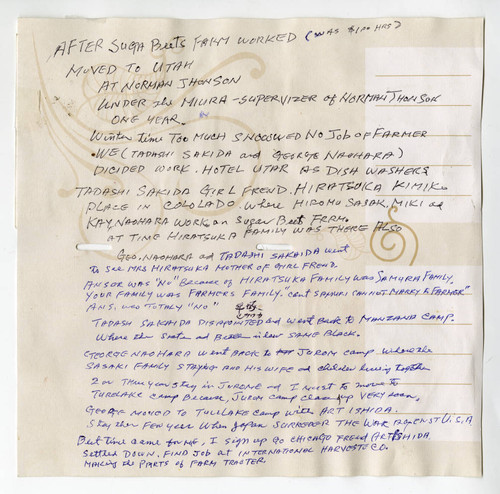 AFTER SUGA Beets FARM WORKED (WAS $1.00 HRS)
MOVED TO UTAH
AT NORMAN JHONSON
UNDER the MIURA - SUPERVIZER of NORMAN JHONSON
ONE YEAR.
Winter time TOO MUCH SNOOWED NO JOB OF FARMER
WE (TADASHI SAKIDA and GEORGE NAOHARA)
DICIDED WORK. HOTEL UTAR AS DISH WASHERS
TADASHI SAKIDA GIRL FREND. HIRATSUKA KIMIK
PLACE IN COLOLADO. Where HIROMU SASAK. MIKI ad
KAY NAOHARA WORK on Sugar Beet FERM.
AT TIME HIRATSUKA FAMILY WAS THERE ALSO
GEO. NAOHARA ad TADASHI SAKAIDA went
To See MRS HIRATSUKA MOTHER OF GIRL FREND.
ANSOR WAS "NO" Because of HIRATSUKA FAMILY WAS SAMURA FAMILY,
YOUR FAMILY WAS FARMERS FAMILY." CANNOT MARRY to FARMER"
ANS. WAS TOTALY "NO"
TADASH SAKAIDA DISAPOINTED and went Back to MANZANA CAMP.
Where the Sister ad in law SAME BLACK.
GEORGE NAOHARA WENT BACK TO JUROM camp where the
SASAKI FAMILY STAYING and HIS WIFE ad children living together
2 or Three years stay in JURENE ad I must to move to
TURELAKE camp Because, JUROM camp close up VERY soon,
GEORGE MOVED TO TULLAKE Camp with ART ISHIDA.
Stay there FEW year When Japan SURRENDER THE WAR AGAINST U.S.A
But time came for ME, I sign up GO CHICAGO FREND ART ISHIDA
Settled DOWN. FIND Job at INTERNATIONAL HARVESTE Co.
MAKING the PARTS OF FARM TRACTER.